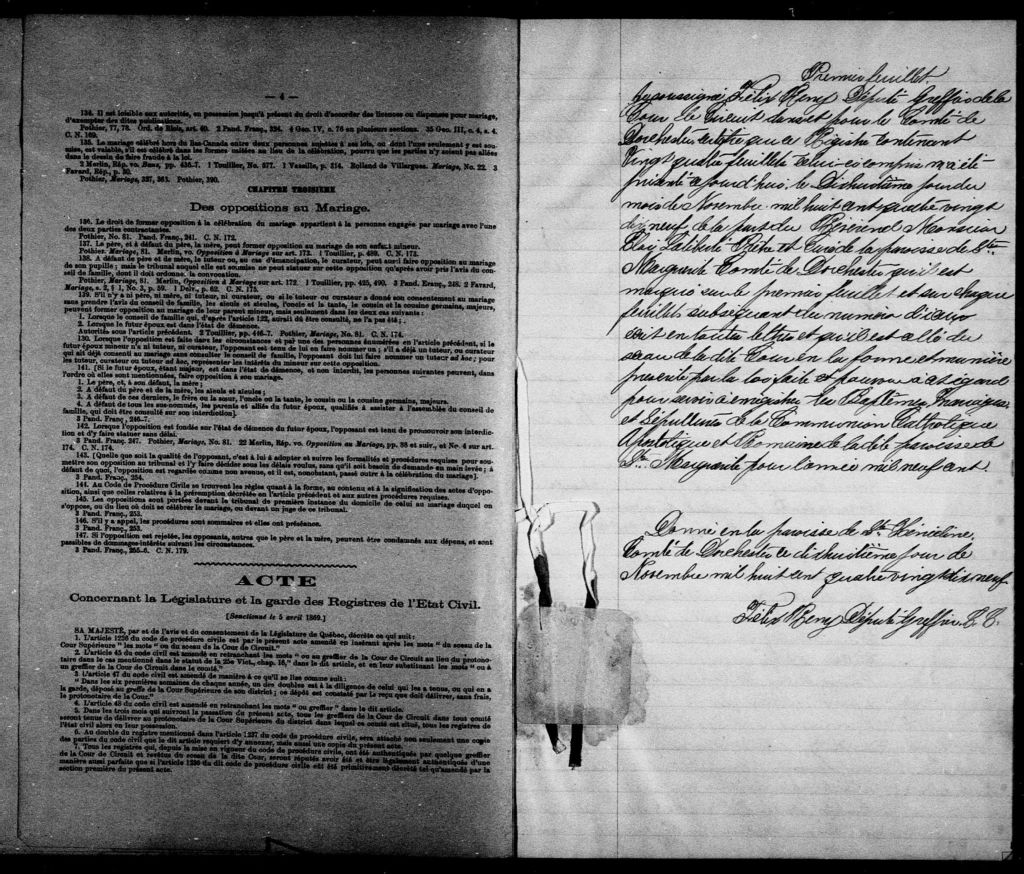 — 4 —
134. Il est loisible aux autorités, en possession jusqu'à présent du droit d'accorder des licences ou dispenses pour mariage,
d'exempter des dites publications.
Pothier, 77, 78. Ord. de Blois, art. 40. 2 Pand. Franç., 334. 4 Geo. IV, c. 76 en plusieurs sections. 35 Geo. III, c. 4, s. 4.
C. N. 169.
135. Le mariage célébré hors du Bas-Canada entre deux personnes sujettes à ses lois, ou dont l'une seulement y est sou-
mise, est valable, s'il est célébré dans les formes usitées au lieu de la célébration, pourvu que les parties n'y soient pas allées
dans le dessin de faire fraude à la loi.
2 Merlin, Rép. vo. Bans, pp. 436-7. 1 Touillier, No. 577. 1 Vaseille, p. 314. Rolland de Villargues. Mariage, No. 22. 3
Favard, Rép., p. 50.
Pothier, Mariage, 327, 363. Pothier, 390.
CHAPITRE TROISIEME
Des oppositions au Mariage.
136. Le droit de former opposition à la célébration du mariage appartient à la personne engagée par mariage avec l'une
des deux parties contractantes.
Pothier, No. 81. Pand. Franç., 241. C. N. 172.
137. Le père, et à défaut du père, la mère, peut former opposition au mariage de son enfant mineur.
Pothier. Mariage, 81. Merlin, vo. Opposition à Mariage sur art. 173. 1 Touillier, p. 489. C. N. 173.
138. A défaut de père et de mère, le tuteur ou, au cas d'émancipation, le curateur, peut aussi faire opposition au mariage
de son pupille; mais le tribunal auquel elle est soumise ne peut statuer sur cette opposition qu'après avoir pris l'avis du con-
seil de famille, dont il doit ordonner, la convocation.
Pothier, Mariage, 81. Merlin, Opposition à Mariage sur art. 172. 1 Touillier, pp. 425, 490. 3 Pand. Franç., 248. 2 Favard,
Mariage, s. 2, § 1, No. 3, p. 59. 1 Delv., 62. C. N. 175.
139. S'il n'y a ni père, ni mère, ni tuteur, ni curateur, ou si le tuteur ou curateur a donné son consentement au mariage
sans prendre l'avis du conseil de famille, les aïeuls et aïeules, l'oncle et la tante, le cousin et la cousine germains, majeurs,
peuvent former opposition au mariage de leur parent mineur, mais seulement dans les deux cas suivants:
1. Lorsque le conseil de famille qui, d'après l'article 122, aurait dû être consulté, ne l'a pas été;
2. Lorsque le futur époux est dans l'état de démence.
Autorités sous l'article précédent. 2 Touillier, pp. 446-7. Pothier, Mariage, No. 81. C. N. 174.
130. Lorsque l'opposition est faite dans les circonstances et par une des personnes énumérées en l'article précédent, si le
futur époux mineur n'a ni tuteur, ni curateur, l'opposant est tenu de lui en faire nommer un; s'il a déjà un tuteur, ou curateur
qui ait déjà consenti au mariage sans consulter le conseil de famille, l'opposant doit lui faire nommer un tuteur ad hoc; pour
les tuteur, curateur ou tuteur ad hoc, représenter les intérêts du mineur sur cette opposition.
141. [Si le futur époux, étant majeur, est dans l'état de démence, et non interdit, les personnes suivantes peuvent, dans
l'ordre où elles sont mentionnées, faire opposition à son mariage.
1. Le père, et, à son défaut, la mère;
2. A défaut du père et de la mère, les aïeuls et aïeules;
3. A défaut de ces derniers, le frère ou la sœur, l'oncle ou la tante, le cousin ou la cousine germains, majeurs.
4. A défaut de tous les sus-nommés, les parents et alliés du futur époux, qualifiés à assister à l'assemblée du conseil de
famille, qui doit être consulté sur son interdiction].
3 Pand. Franç., 246-7.
142. Lorsque l'opposition est fondée sur l'état de démence du futur époux, l'opposant est tenu de promouvoir son interdic-
tion et d'y faire statuer sans délai.
3 Pand. Franç. 247. Pothier, Mariage, No. 81. 22 Merlin, Rép. vo. Opposition au Mariage, pp. 88 et suiv., et No. 4 sur art.
174. C. N. 174.
143. [Quelle que soit la qualité de l'opposant, c'est à lui à adopter et suivre les formalités et procédures requises pour sou-
mettre son opposition au tribunal et l'y faire décider sous les délais voulus, sans qu'il soit besoin de demande en main levée; à
défaut de quoi, l'opposition est regardée comme non avenue, et il est, nonobstant, passé outre à la célébration du mariage].
3 Pand. Franç., 254.
144. Au Code de Procédure Civile se trouvent les règles quant à la forme, au contenu et à la signification des actes d'oppo-
sition, ainsi que celles relatives à la préremption décrétée en l'article précédent et aux autres procédures requises.
145. Les oppositions sont portées devant le tribunal de première instance du domicile de celui au mariage duquel on
s'oppose, ou du lieu où doit se célébrer le mariage, ou devant un juge de ce tribunal.
3 Pand. Franç., 253.
146. S'il y a appel, les procédures sont sommaires et elles ont préséance.
3 Pand. Franç., 253.
147. Si l'opposition est rejetée, les opposants, autres que le père et la mère, peuvent être condamnés aux dépens, et sont
passibles de dommages-intérêts suivant les circonstances.
3 Pand. Franç., 255-6. C. N. 179.
ACTE
Concernant la Législature et la garde des Registres de l'Etat Civil.
[Sanctionné le 5 avril 1869.]
SA MAJESTÉ, par et de l'avis et du consentement de la Législature de Québec, décrète ce qui suit:
1. L'article 1236 du code de procédure civile est par le présent acte amendé en insérant après les mots "du sceau de la
Cour Supérieure" les mots "ou du sceau de la Cour de Circuit."
2. L'article 45 du code civil est amendé en retranchant les mots "ou au greffier de la Cour de Circuit au lieu du protono-
taire dans le cas mentionné dans le statut de la 25e Vict., chap. 16," dans le dit article, et en leur substituant les mots "ou à
un greffier de la Cour de Circuit dans le comté."
3. L'article 47 du code civil est amendé de manière à ce qu'il se lise comme suit:
"Dans les six premières semaines de chaque année, un des doubles est à la diligence de celui qui les a tenus, ou qui en a
la garde, déposé au greffe de la Cour Supérieure de son district; ce dépôt est constaté par le reçu que doit délivrer, sans frais,
le protonotaire de la Cour."
4. L'article 48 du code civil est amendé en retranchant les mots "ou greffier" dans le dit article.
5. Dans les trois mois qui suivront la passation du présent acte, tous les greffiers de la Cour de Circuit dans tous comté
seront tenus de délivrer au protonotaire de la Cour Supérieure du district dans lequel ce comté est situé, tous les registres de
l'état civil alors en leur possession.
6. Au double du registre mentionné dans l'article 1237 du code de procédure civile, sera attaché non seulement une copie
des parties du code civil que le dit article requiert d'y annexer, mais aussi une copie du présent acte.
7. Tous les registres qui, depuis la mise en vigueur du code de procédure civile, ont été authentiqués par quelque greffier
de la Cour de Circuit et revêtus du sceau de la dite Cour, seront réputés avoir été et être légalement authentiqués d'une
manière aussi parfaite que si l'article 1236 du dit code de procédure civile eût été primitivement décrété tel qu'amendé par la
section première du présent acte.
Premier feuillet.
Je soussigné, Félix Remy Député Greffier de la
Cour de Circuit dans et pour le Comté de
Dorchester certifie que ce Régistre contenant
Vingt quatre feuillets celui-ci compris m'a été
présenté aujourd'hui le Dixhuitième jour du
mois de Novembre mil huit cent quatre vingt
dix neuf de la part du Révérend Monsieur
Prêtre et Curé de la paroisse de Ste
Marguerite Comté de Dorchester qu'il est
marqué sur le premier feuillet et sur chaque
feuillet subséquent du numéro d'icelui
écrit en toutes lettres et qu'il est scellé du
sceau de la dite Cour en la forme et manière
prescrite par la loi faite et pourvue à cet égard
pour servir à enregistrer les Baptêmes, Mariages
et Sépultures de la Communion Catholique
Apostolique et Romaine de la dite paroisse de
Ste Marguerite pour l'année mil neuf cent.
Donné en la paroisse de Ste Hénédine,
Comté de Dorchester ce dixhuitième jour de
Novembre mil huit cent quatre vingt dix neuf.
Félix Remy Député Greffier C. C.